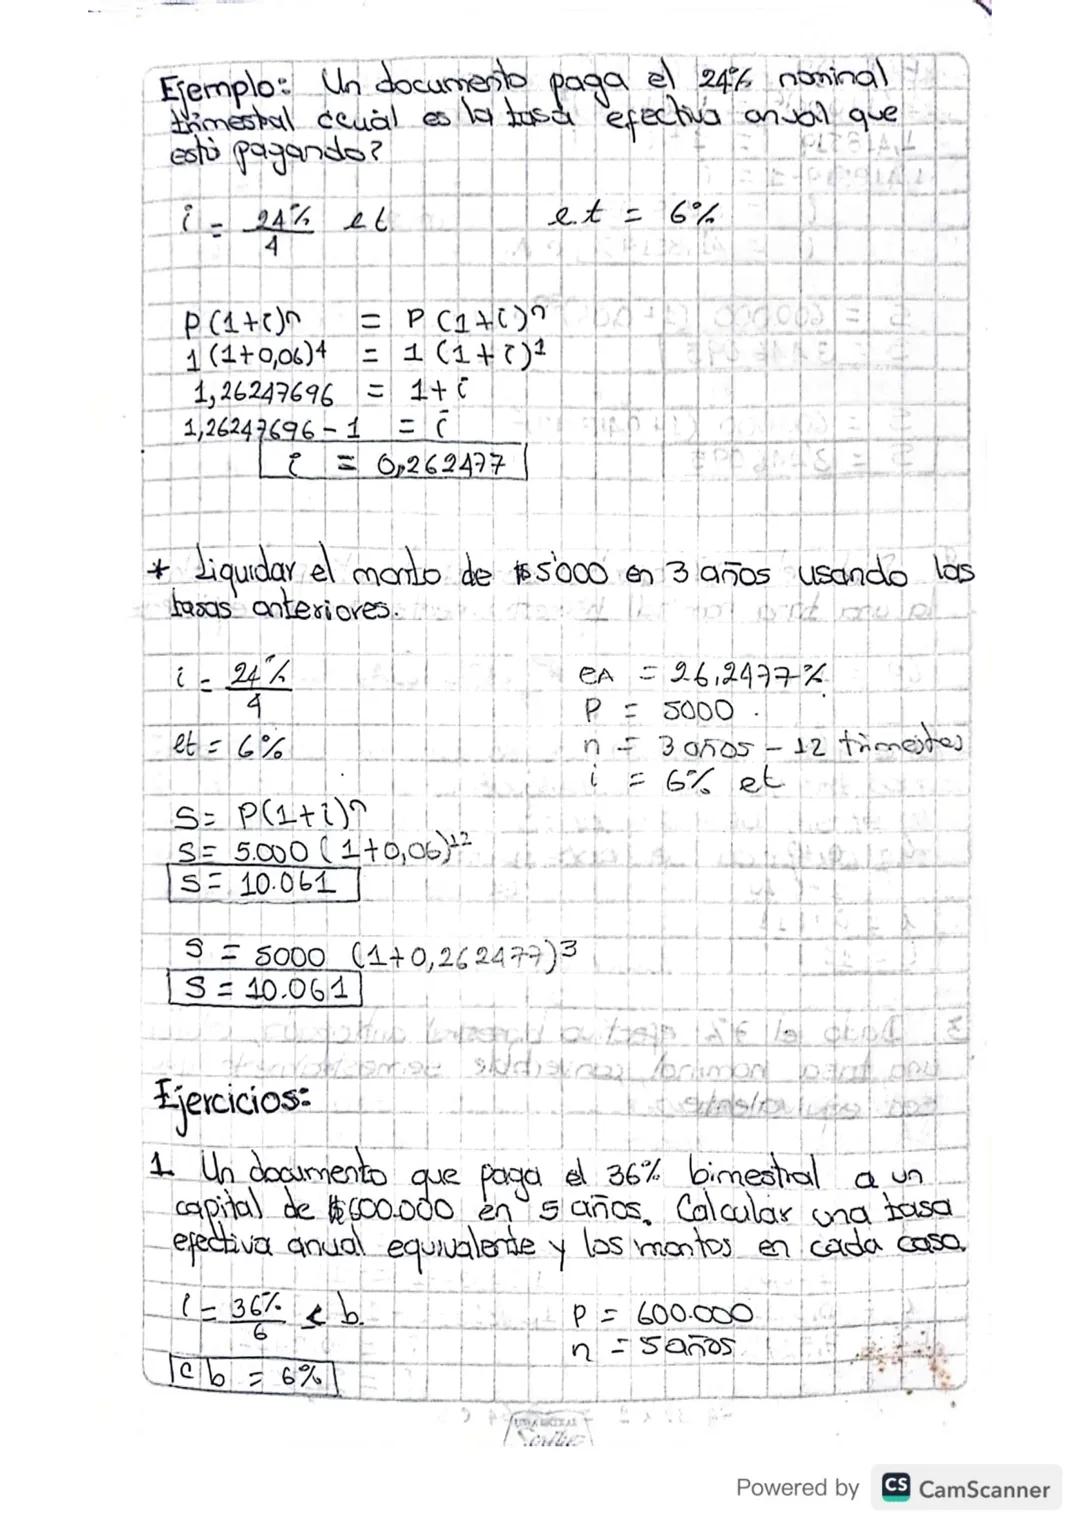 Ejemplo: Un documento paga el 24% nominal
trimestral ¿cuál es la tasa efectiva anual que
está pagando?
i = 24% et e.t = 6%
4
P(1+i)n = P(1+i)n
1(1+0,06)4 = 1(1+i)1
1,26247696 = 1+i
1,26247696-1 = i
i = 0,262477
* Liquidar el monto de $5'000 en 3 años usando las
tasas anteriores.
i = 24% EA = 26,2477%
4 P = 5000.
et = 6% n = 3 años - 12 trimestres
i = 6% et
S= P(1+i)n
S= 5.000 (1+0,06)12
S= 10.061
S = 5000 (1+0,262477)3
S = 10.061
Ejercicios:
1 Un documento que paga el 36% bimestral a un
capital de $600.000 en 5 años. Calcular una tasa
efectiva anual equivalente y los montos en cada caso.
i = 36% eb. P = 600.000
6 n = 5 años
eb = 6%
Scribe
Powered by CS CamScanner